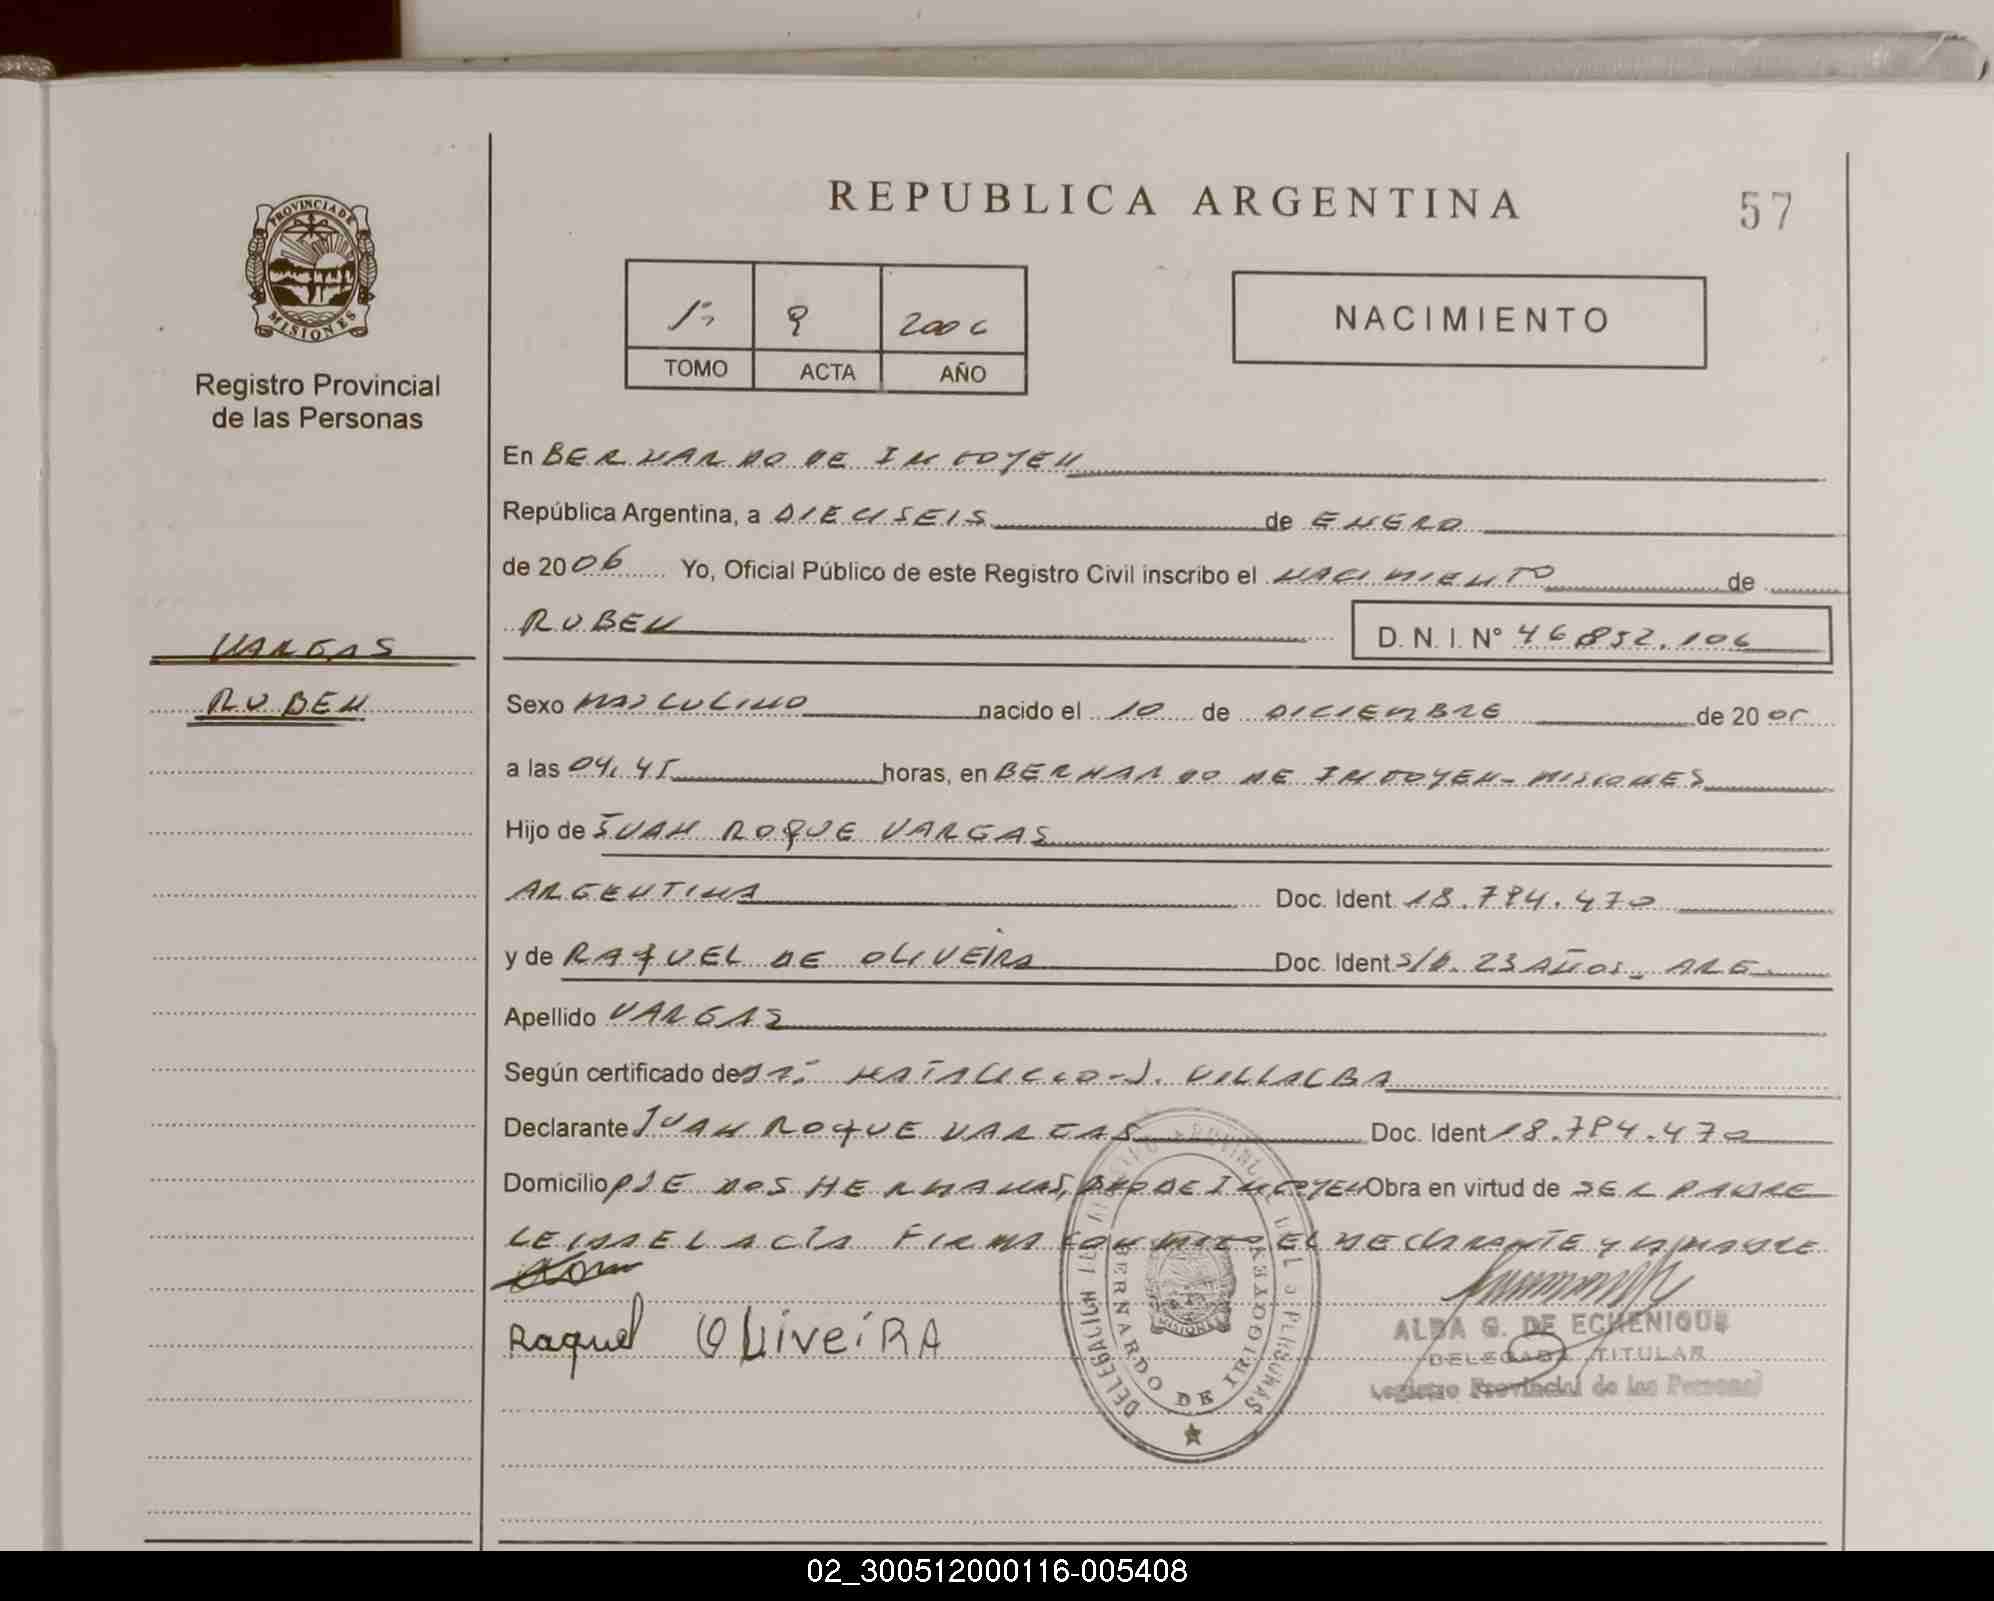 REPUBLICA ARGENTINA
57
PROVINCIA DE
MISIONES
Registro Provincial
de las Personas
2006
TOMO ACTA AÑO
NACIMIENTO
En BERNARDO DE IRIGOYEN
República Argentina, a DIECISEIS de ENERO
de 2006 Yo, Oficial Público de este Registro Civil inscribo el NACIMIENTO de
RUBEN D. N. I. N° 46.852.106
VARGAS
RUBEN
Sexo MASCULINO nacido el 10 de DICIEMBRE de 2005
a las 04,45 horas, en BERNARDO DE IRIGOYEN - MISIONES
Hijo de JUAN ROQUE VARGAS
ARGENTINA Doc. Ident. 18.784.470
y de RAQUEL DE OLIVEIRA Doc. Ident S/D. 23 AÑOS - ARG.
Apellido VARGAS
Según certificado de NATALICIO J. VILLALBA
Declarante JUAN ROQUE VARGAS Doc. Ident 18.784.470
Domicilio PJE DOS HERMANAS, BDO DE IRIGOYEN Obra en virtud de SER PADRE
LEIDA EL ACTA FIRMA CONMIGO EL DECLARANTE Y LA MADRE
Raquel OLiveiRA
DELEGACION
REGISTRO PROVINCIAL DE LAS PERSONAS
BERNARDO DE IRIGOYEN
MISIONES
ALBA G. DE ECHENIQUE
DELEGADA TITULAR
Registro Provincial de las Personas
02_300512000116-005408